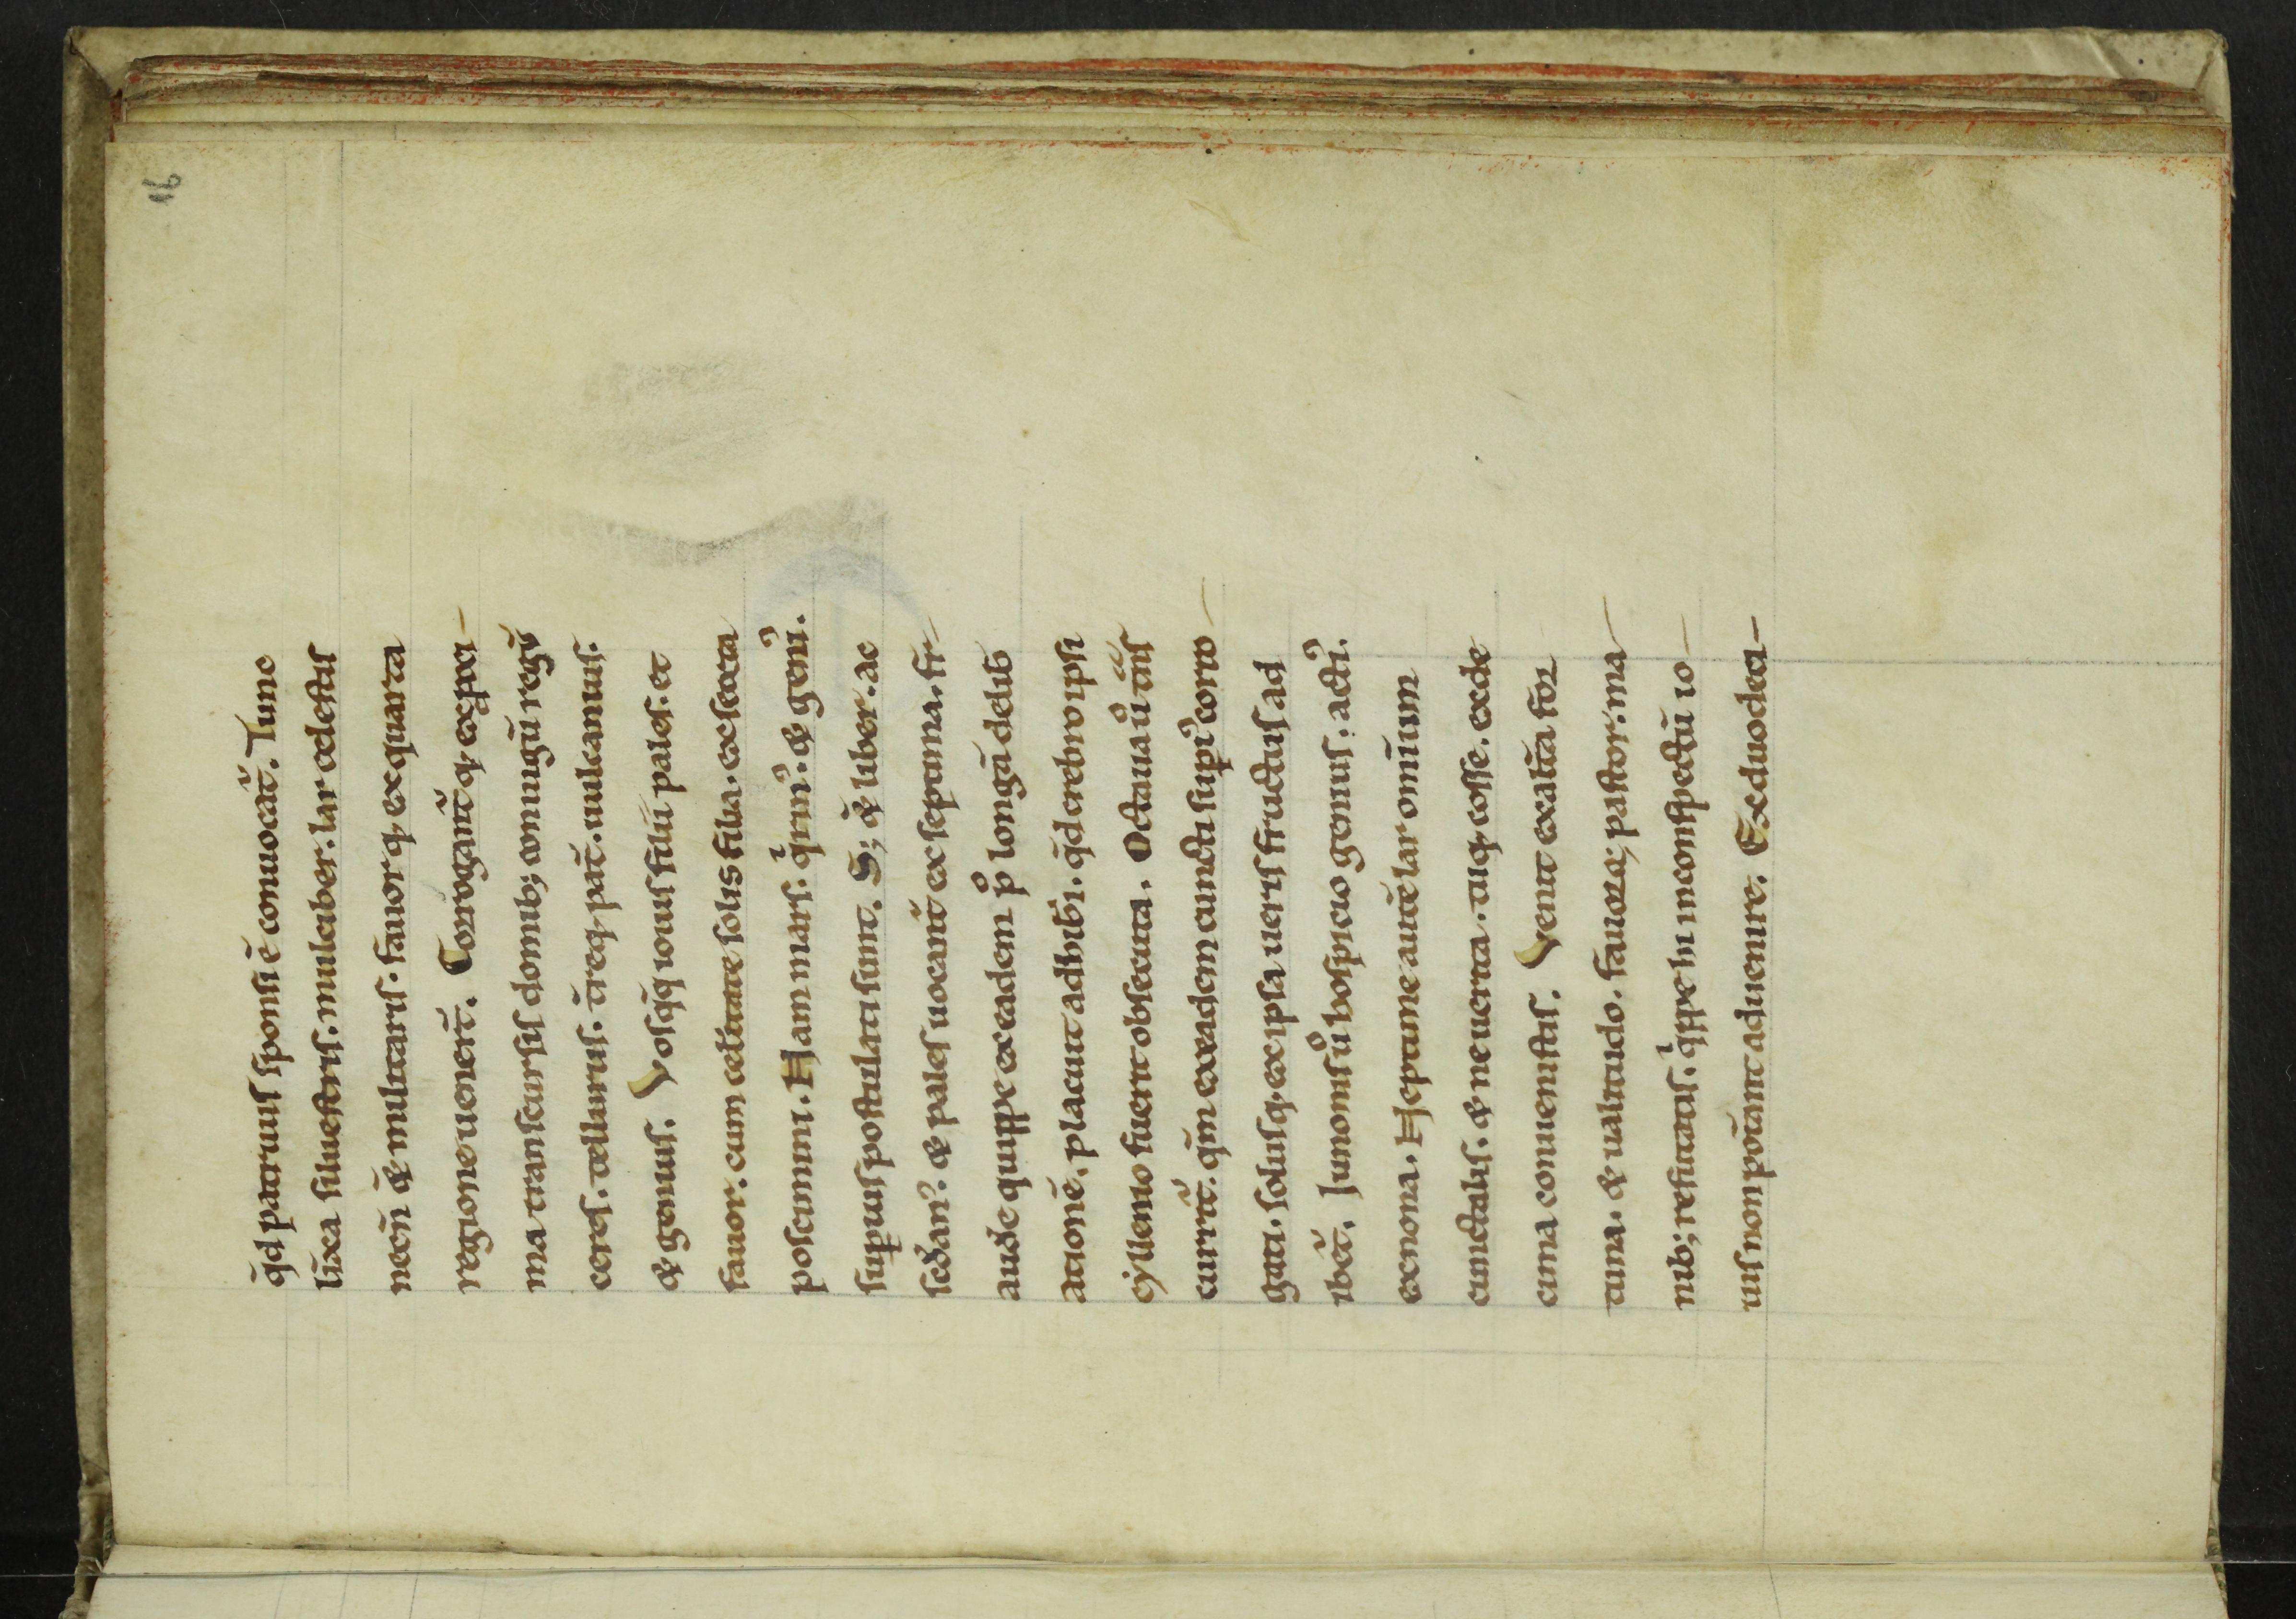 16
q̄d patruus sponsi ē conuocat̄. Tunc
lixa siluestris. mulciber. lar celestis
necn̄ & militaris. fauorq; ex quarta
regione uenert̄. Corrogant̄q; ex ꝓxi-
ma transcursis domib; coniugū regū
ceres. telluris. t̄req; pat̄. uulcanus.
& genius. Vosq̄q̄ iouis filii pales. et
fauor. cum celitate solis filia. ex sexta
poscimini. Nam mars. q̇rinꝰ. & geniꝰ.
suꝑius postulati sunt. S; & liber. ac
scd̄anꝰ. & pales uocant̄ ex septima. fr̄-
aude quippe ex eadem p̊ longā delib̄
ationē. placuit adhib̄i. q̄d crebro ipsi
cẏllenio fuerit obsecuta. Octaua ů t̄ns
currit̄. qm̄ ex eadem cuncti suꝑiꝰ corro-
gati. solusq; ex ipsa ueris fructus ad
ibet̄. Junonis ů hospicio genius. actiꝰ.
ex nona. Neptune autē lar omīum
cunctalis. & neuerita. tuq; cosse. ex de
cima conuenistis. Venit ex alt̄a for
tuna. & ualitudo. fauorq;; pastor. ma-
nib; refutatis. q̇ppe hi in conspectū io-
uis non pot̄ant aduenire. Ex duodeci-